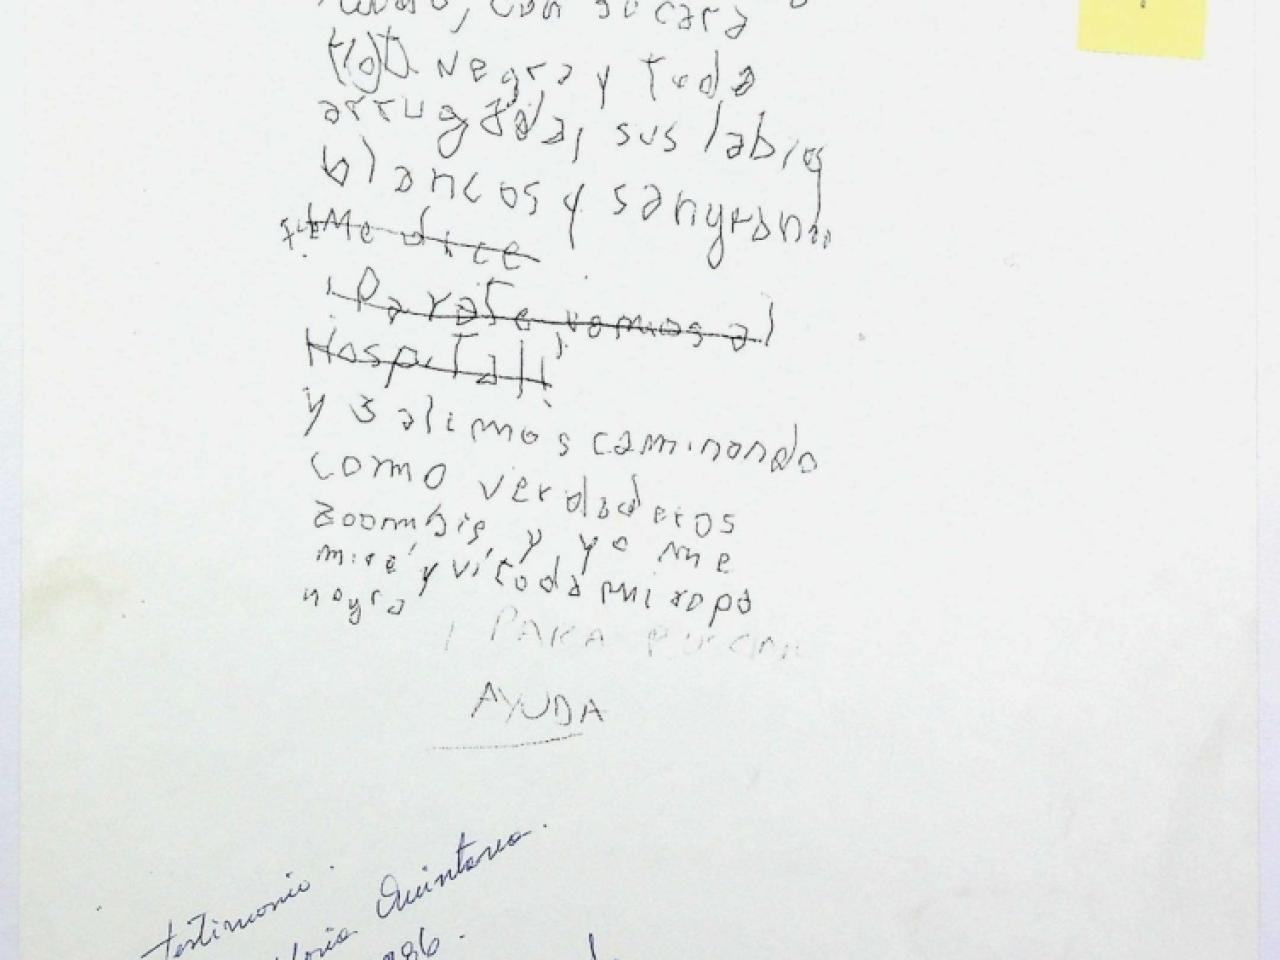 con su cara
negra y toda
arrugada, sus labios
blancos y sangrando
Me dice
¡Parate vamos al
Hospital!
y salimos caminando
como verdaderos
zoombis, y yo me
miré y ví toda mi ropa
negra
PARA BUSCAR
AYUDA
testimonio.
Gloria Quintana.
986.